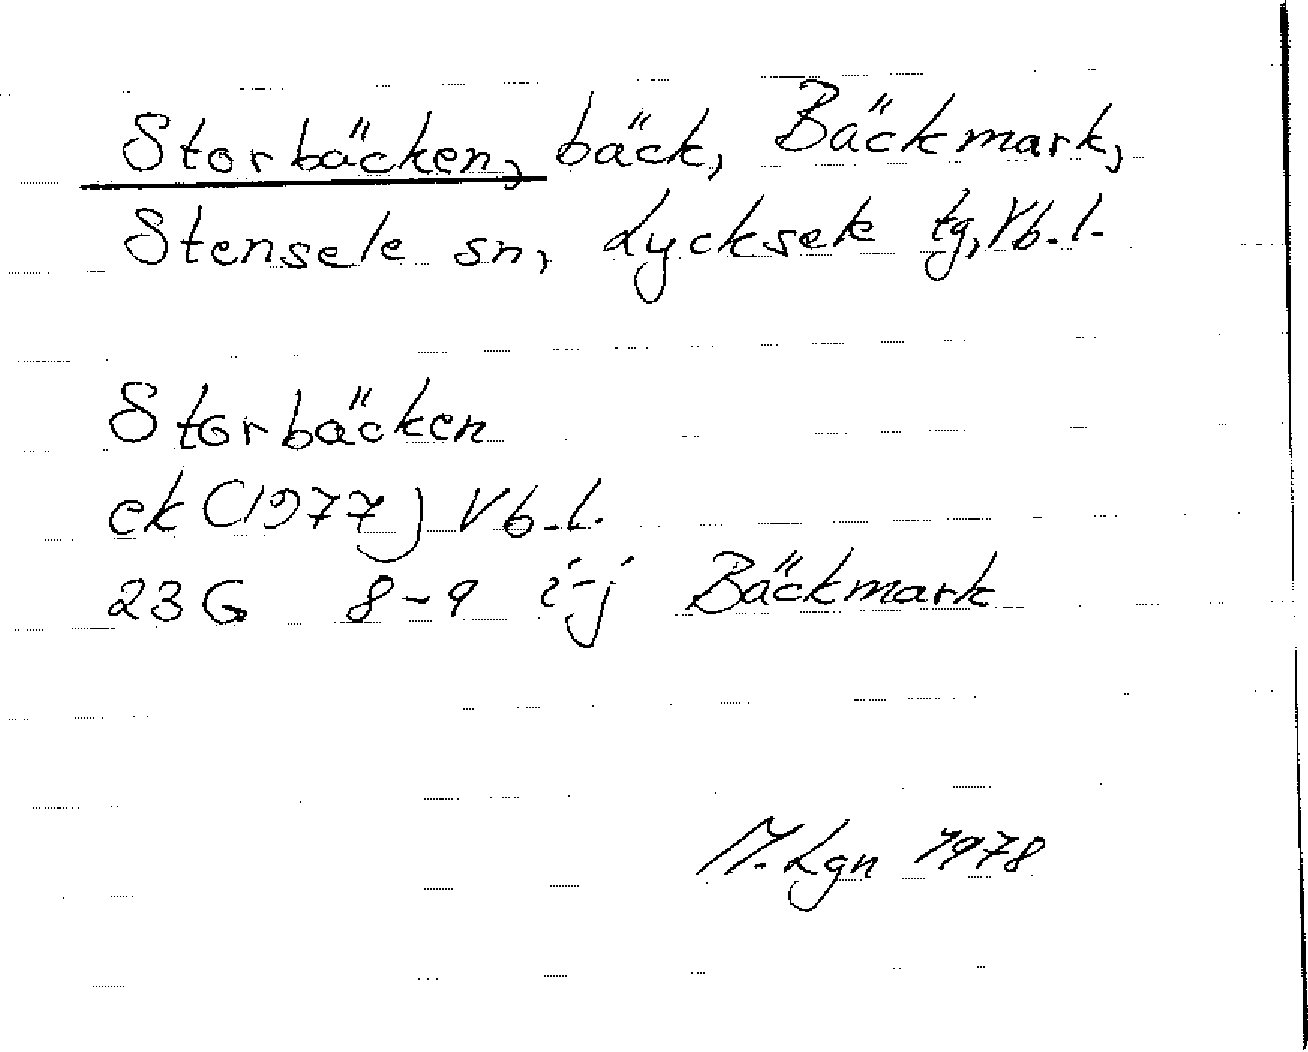 Storbäcken, bäck, Bäckmark,
Stensele sn, Lycksele tg, Vb. l.
Storbäcken
ek (1977) Vb. l.
23 G 8-9 i-j Bäckmark
M. Lgn 1978